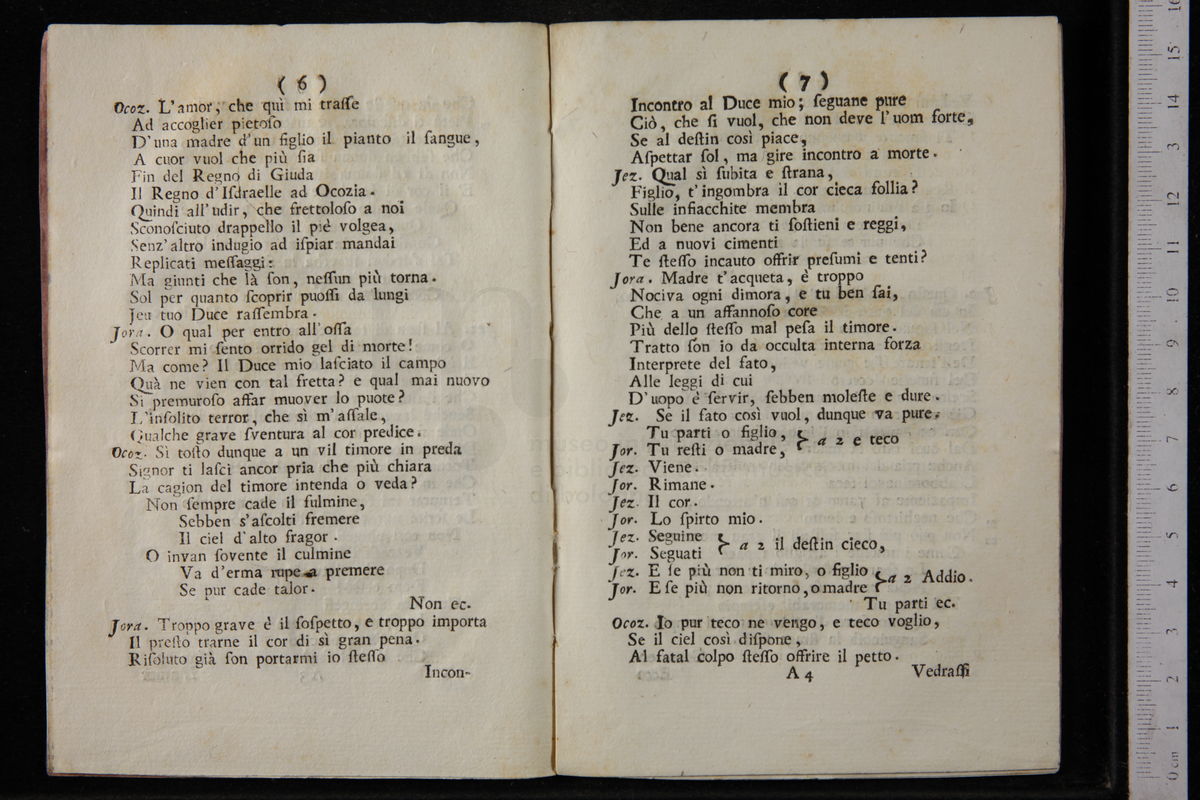 ( 6 )
Ocoz. L'amor, che quì mi traſſe
Ad accoglier pietoſo
D'una madre d'un figlio il pianto il ſangue,
A cuor vuol che più ſia
Fin del Regno di Giuda
Il Regno d'Iſdraelle ad Ocozia.
Quindi all'udir, che frettoloſo a noi
Sconoſciuto drappello il piè volgea,
Senz'altro indugio ad iſpiar mandai
Replicati meſſaggi:
Ma giunti che là ſon, neſſun più torna.
Sol per quanto ſcoprir puoſſi da lungi
Jeu tuo Duce raſſembra.
Jora. O qual per entro all'oſſa
Scorrer mi ſento orrido gel di morte!
Ma come? Il Duce mio laſciato il campo
Quà ne vien con tal fretta? e qual mai nuovo
Sì premuroſo affar muover lo puote?
L'inſolito terror, che sì m'aſſale,
Qualche grave ſventura al cor predice.
Ocoz. Sì toſto dunque a un vil timore in preda
Signor ti laſci ancor pria che più chiara
La cagion del timore intenda o veda?
Non ſempre cade il fulmine,
Sebben s'aſcolti fremere
Il ciel d'alto fragor.
O invan ſovente il culmine
Va d'erma rupe a premere
Se pur cade talor.
Non ec.
Jora. Troppo grave è il ſoſpetto, e troppo importa
Il preſto trarne il cor di sì gran pena.
Riſoluto già ſon portarmi io ſteſſo
Incon-
( 7 )
Incontro al Duce mio; ſeguane pure
Ciò, che ſi vuol, che non deve l'uom forte,
Se al deſtin così piace,
Aſpettar ſol, ma gire incontro a morte.
Jez. Qual sì ſubita e ſtrana,
Figlio, t'ingombra il cor cieca follia?
Sulle infiacchite membra
Non bene ancora ti ſoſtieni e reggi,
Ed a nuovi cimenti
Te ſteſſo incauto offrir preſumi e tenti?
Jora. Madre t'acqueta, è troppo
Nociva ogni dimora, e tu ben ſai,
Che a un affannoſo core
Più dello ſteſſo mal peſa il timore.
Tratto ſon io da occulta interna forza
Interprete del fato,
Alle leggi di cui
D'uopo è ſervir, ſebben moleſte e dure.
Jez. Se il fato così vuol, dunque va pure.
Tu parti o figlio,
Jor. Tu reſti o madre, } a 2 e teco
Jez. Viene.
Jor. Rimane.
Jez. Il cor.
Jor. Lo ſpirto mio.
Jez. Seguine
Jor. Seguati } a 2 il deſtin cieco,
Jez. E ſe più non ti miro, o figlio
Jor. E ſe più non ritorno, o madre } a 2 Addio.
Tu parti ec.
Ocoz. Io pur teco ne vengo, e teco voglio,
Se il ciel così diſpone,
Al fatal colpo ſteſſo offrire il petto.
A 4 Vedraſſi